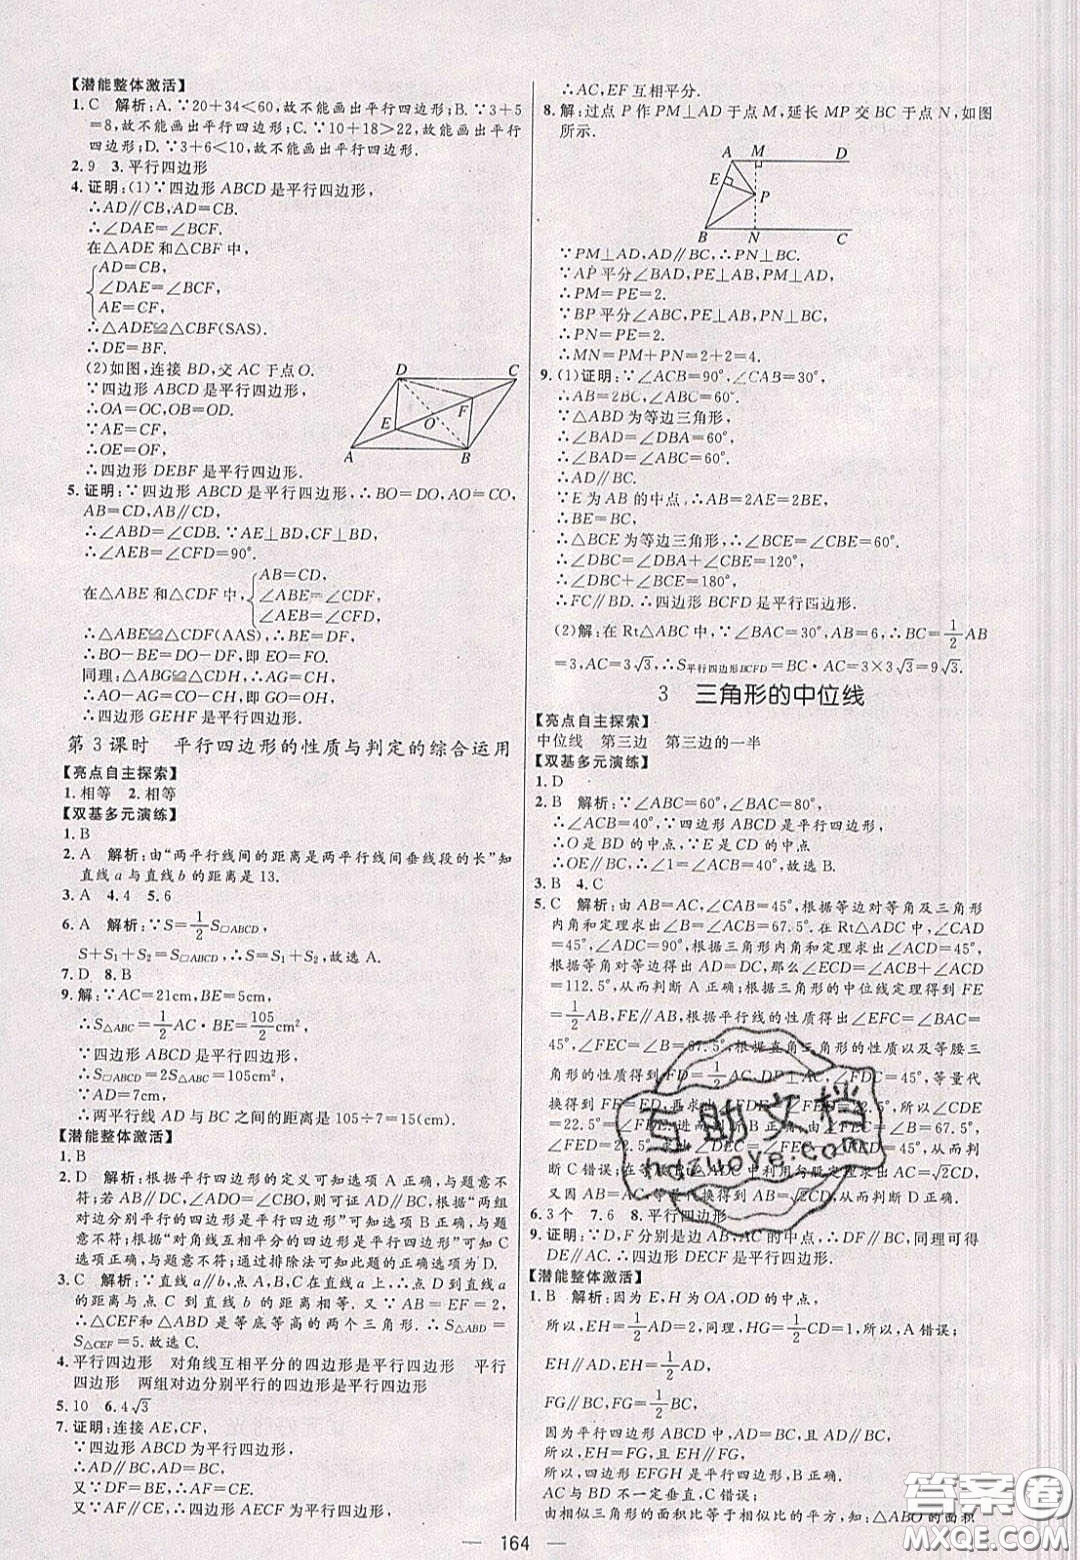 【潜能整体激活】
1.C　解析:A.∵20+34<60,故不能画出平行四边形;B.∵3+5
=8,故不能画出平行四边形;C.∵10+18>22,故能画出平行
四边形;D.∵3+6<10,故不能画出平行四边形.
2.9　3.平行四边形
4.证明:(1)∵四边形 ABCD 是平行四边形,
∴AD∥CB,AD=CB.
∴∠DAE=∠BCF.
在△ADE 和△CBF 中,
AD=CB,
∠DAE=∠BCF,
AE=CF,
∴△ADE≌△CBF(SAS).
∴DE=BF.
(2)如图,连接 BD,交 AC 于点O.
∵四边形 ABCD 是平行四边形,
∴OA=OC,OB=OD.
∵AE=CF,
∴OE=OF.
∴四边形 DEBF 是平行四边形.
D C F E O A B
5.证明:∵四边形 ABCD 是平行四边形,∴BO=DO,AO=CO,
AB=CD,AB∥CD.
∴∠ABD=∠CDB.∵AE⊥BD,CF⊥BD,
∴∠AEB=∠CFD=90°.
在△ABE 和△CDF 中,
AB=CD,
∠ABE=∠CDF,
∠AEB=∠CFD
∴△ABE≌△CDF(AAS),∴BE=DF.
∴BO-BE=DO-DF,即 EO=FO.
同理:△ABG≌△CDH,∴AG=CH.
∴AO-AG=CO-CH,即 GO=OH.
∴四边形 GEHF 是平行四边形.
第 3 课时　平行四边形的性质与判定的综合运用
【亮点自主探索】
1.相等　2.相等
【双基多元演练】
1.B
2.A　解析:由“两平行线间的距离是两平行线间垂线段的长”知
直线 a 与直线 b 的距离是 13.
3.A　4.4　5.6
6.A　解析:∵S=1/2S□ABCD,
S+S1+S2=S□ABCD,∴S=S1+S2,故选 A.
7.D　8.B
9.解:∵AC=21cm,BE=5cm,
∴S△ABC=1/2AC·BE=105/2cm²,
∵四边形 ABCD 是平行四边形,
∴S□ABCD=2S△ABC=105cm²,
∵AD=7cm,
∴两平行线 AD 与 BC 之间的距离是 105÷7=15(cm).
【潜能整体激活】
1.B
2.D　解析:根据平行四边形的定义可知选项 A 正确,与题意不
符;若 AB∥DC,∠ADO=∠CBO,则可证 AD∥BC,根据“两组
对边分别平行的四边形是平行四边形”可知选项 B 正确,与
题意不符;根据“对角线互相平分的四边形是平行四边形”可知 C
选项正确,与题意不符;通过排除法可知此题的正确选项为 D.
3.C　解析:∵直线 a∥b,点 A,B,C 在直线 a 上,∴点 D 到直线
a 的距离与点 C 到直线 b 的距离相等.又∵AB=EF=2,
∴△CEF和△ABD 是等底等高的两个三角形.∴S△ABD=
S△CEF=5.故选 C.
4.平行四边形　对角线互相平分的四边形是平行四边形　平行
四边形　两组对边分别平行的四边形是平行四边形
5.10　6.4√3
7.证明:连接 AE,CF,
∵四边形 ABCD 为平行四边形,
∴AD∥BC,AD=BC.
又∵DF=BE,∴AF=CE.
又∵AF∥CE,∴四边形 AECF 为平行四边形,
∴AC,EF 互相平分.
8.解:过点 P 作 PM⊥AD 于点 M,延长 MP 交 BC 于点 N,如图
所示.
A M D E P B N C
∵PM⊥AD,AD∥BC,∴PN⊥BC.
∵AP 平分∠BAD,PE⊥AB,PM⊥AD,
∴PM=PE=2.
∵BP 平分∠ABC,PE⊥AB,PN⊥BC,
∴PN=PE=2.
∴MN=PM+PN=2+2=4.
9.(1)证明:∵∠ACB=90°,∠CAB=30°,
∴AB=2BC,∠ABC=60°.
∵△ABD 为等边三角形,
∴∠BAD=∠DBA=60°,
∴∠BAD=∠ABC=60°.
∴AD∥BC.
∵E 为 AB 的中点,∴AB=2AE=2BE,
∴BE=BC,
∴△BCE 为等边三角形,∴∠BCE=∠CBE=60°.
∴∠DBC=∠DBA+∠CBE=120°,
∴∠DBC+∠BCE=180°,
∴FC∥BD.∴四边形 BCFD 是平行四边形.
(2)解:在 Rt△ABC 中,∵∠BAC=30°,AB=6,∴BC=1/2AB
=3,AC=3√3,∴S平行四边形BCFD=BC·AC=3×3√3=9√3.
3　三角形的中位线
【亮点自主探索】
中位线　第三边　第三边的一半
【双基多元演练】
1.D
2.B　解析:∵∠ABC=60°,∠BAC=80°,
∴∠ACB=40°,∵四边形 ABCD 是平行四边形,
∴O 是 BD 的中点,∵E 是 CD 的中点,
∴OE∥BC,∴∠1=∠ACB=40°,故选 B.
3.B　4.C
5.C　解析:由 AB=AC,∠CAB=45°,根据等边对等角及三角形
内角和定理求出∠ABC=∠ACB=67.5°.在 Rt△ADC 中,∠CAD
=45°,∠ADC=90°,根据三角形内角和定理求出∠ACD=45°,
根据等角对等边得出 AD=DC,那么∠ECD=∠ACB+∠ACD=
112.5°,从而判断 A 正确;根据三角形的中位线定理得到 FE=
1/2AB,FE∥AB,根据平行线的性质得出∠EFC=∠BAC=
45°,∠FEC=∠B=67.5°,根据直角三角形的性质以及等腰三
角形的性质得到 FD=1/2AC,DF⊥AC,∠FDC=45°,等量代
换得到 FE=FD,再求出∠FDE=∠FED=22.5°,所以∠CDE
=22.5°
∠FED=22.5°
断 C 错误;在等腰 Rt△ADC 中利用勾股定理求出 AC=√2CD,
又因为 AB=AC,等量代换得到 AB=√2CD,从而判断 D 正确.
6.3 个　7.6　8.平行四边形
9.证明:∵D,F 分别是边 AB,AC 的中点,∴DF∥BC,同理可得
DE∥AC.∴四边形 DECF 是平行四边形.
【潜能整体激活】
1.B　解析:因为 E,H 为 OA,OD 的中点,
所以,EH=1/2AD=2,同理,HG=1/2CD=1.5,所以,A 错误;
EH∥AD,EH=1/2AD,
FG∥BC,FG=1/2BC,
因为平行四边形 ABCD 中,AD=BC,AD∥BC,
所以,EH=FG,且 EH∥FG,
所以,四边形 EFGH 是平行四边形,B 正确.
AC 与 BD 不一定垂直,C 错误;
由相似三角形的面积比等于相似比的平方,知:△ABO 的面积
164
互助文档
hdzuoye.com
答案圈
MXQE.COM